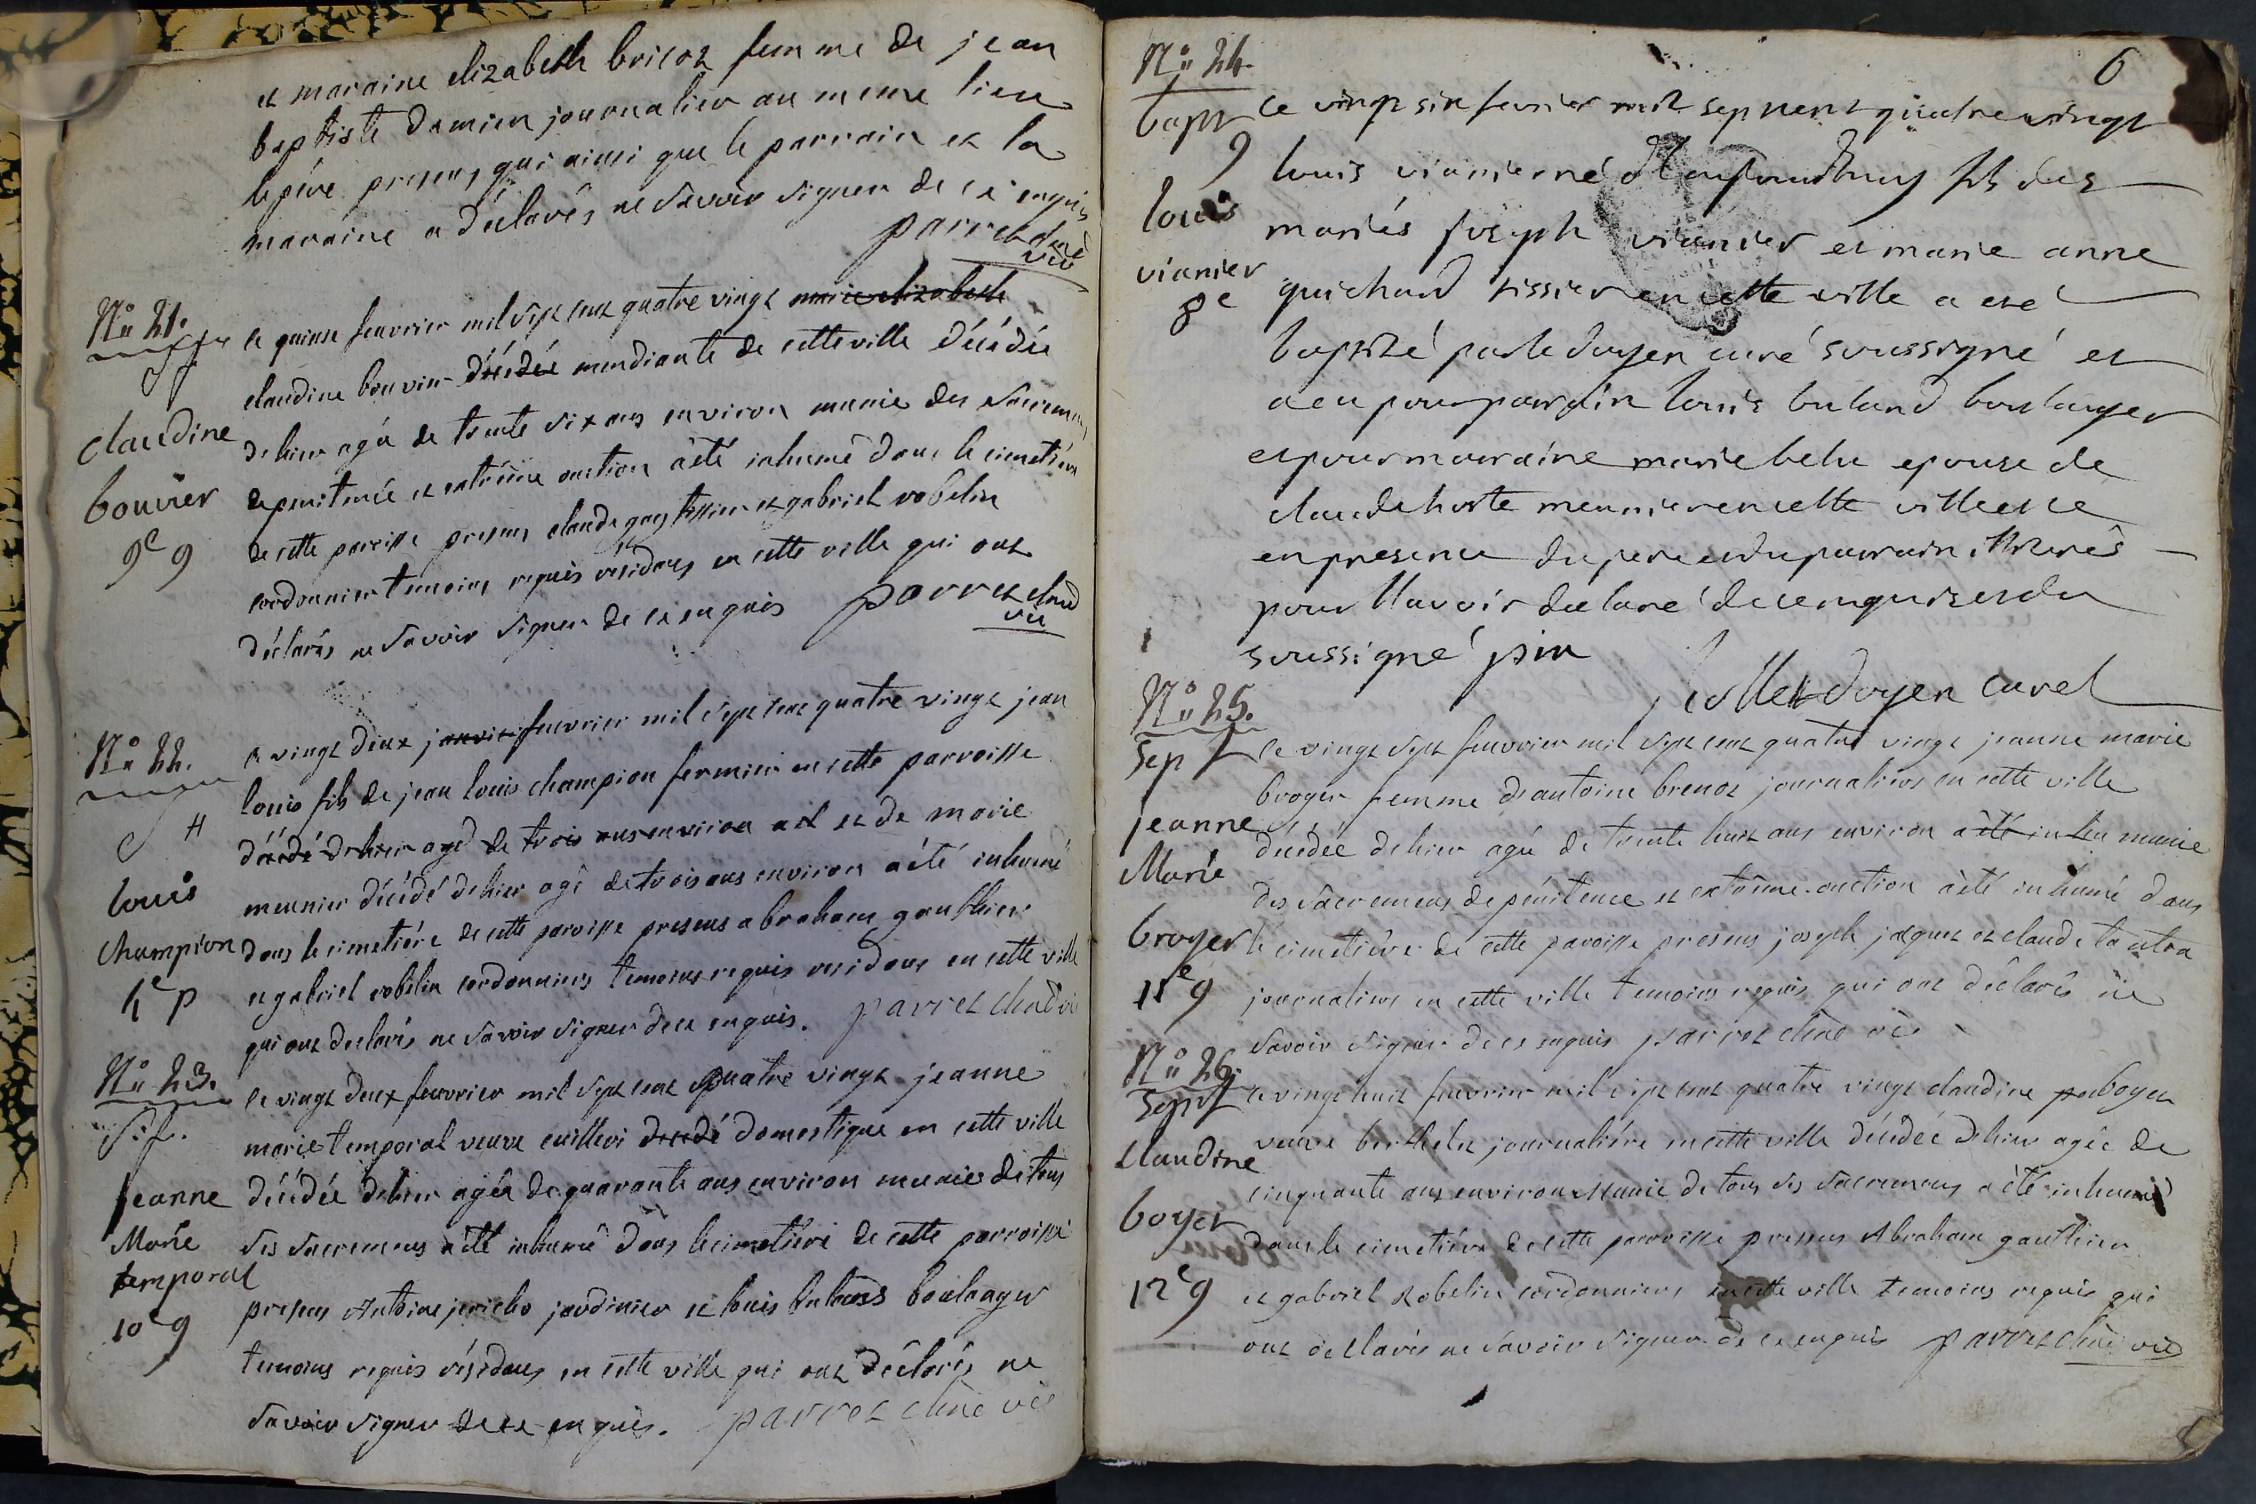 et maraine elizabeth bricot femme de jean
baptiste damien journalier au meme lieu
le pére presens, qui ainsi que le parrain et la
maraine a déclarés ne savoir signer de ce enquis
parret chne
vic
No 21.
Claudine
bouvier
9e 9
le quinze feuvrier mil sept cent quatre vingt marie elizabeth
claudine bouvier décédée mendiante de cette ville décédée
dehier agée de trente six ans environ munie des sacremens
de penitence et extrême onction a été inhumé dans le cimetiére
de cette paroisse presens claude guy tissier et gabriel robelin
cordonnier temoins requis residans en cette ville qui ont
déclarés ne savoir signer de ce enquis parret chne
vic
No 22.
louis
Champion
4e p
le vingt deux janvier feuvrier mil sept cent quatre vingt jean
louis fils de jean louis champion fermier en cette parroisse
décédé dehier agé de trois ans environ a et et de marie
meunier décédé dehier agé de trois ans environ a été inhumé
dans le cimetiére de cette paroisse presens abraham gauthier
et gabriel robelin cordonniers temoins requis residans en cette ville
qui ont declarés ne savoir signer de ce enquis. parret chne vic
No 23.
S. f.
jeanne
Marie
temporal
10e 9
le vingt deux feuvrier mil sept cent quatre vingt jeanne
marie temporal veuve cuillevi décédé domestique en cette ville
décédée dehier agée de quarante ans environ munie de tous
ses sacremens a été inhumé dans le cimetiére de cette parroisse
presens Antoine jericho jardinier et louis buland boulanger
temoins requis résidans en cette ville qui ont déclarés ne
savoir signer de ce enquis. parret chne vic
6
No 24.
bapt
9
louis
vianier
8e
Ce vingt six fevrier mil sept cent quatre vingt
louis vianier né fils des
mariés joseph vianier et marie anne
guichard tissier en cette ville a eté
baptizé par le doyen curé soussigné et
a eu pour parrain louis buland boulanger
et pour marraine marie belu epouse de
claude hoste meunier en cette ville et ce
en presence du pere et du parrain illiterés
pour l'avoir declaré de ce enquis et du
soussigné
doyen curé
No 25.
Sep
jeanne
Marie
broyer
11e 9
le vingt sept feuvrier mil sept cent quatre vingt jeanne marie
broyer femme d'antoine brenot journaliers en cette ville
décédée dehier agée de trente huit ans environ a été in heu munie
des sacremens de pénitence et extrême-onction a été inhumé dans
le cimetiére de cette paroisse presens joseph jacques et claude
journaliers en cette ville temoins requis qui ont déclarés ne
savoir signer de ce enquis parret chne vic
No 26.
Sep
Claudine
boyer
12e 9
le vingt huit feuvrier mil sept cent quatre vingt claudine boyer
veuve berthelet journaliére en cette ville décédée dehier agée de
cinquante ans environ Munie de tous ses sacremens a été inhumé
dans le cimetiére de cette parroisse presens Abraham gauthier
et gabriel Robelin cordonniers en cette ville temoins requis qui
ont declarés ne savoir signer de ce enquis parret chne vic